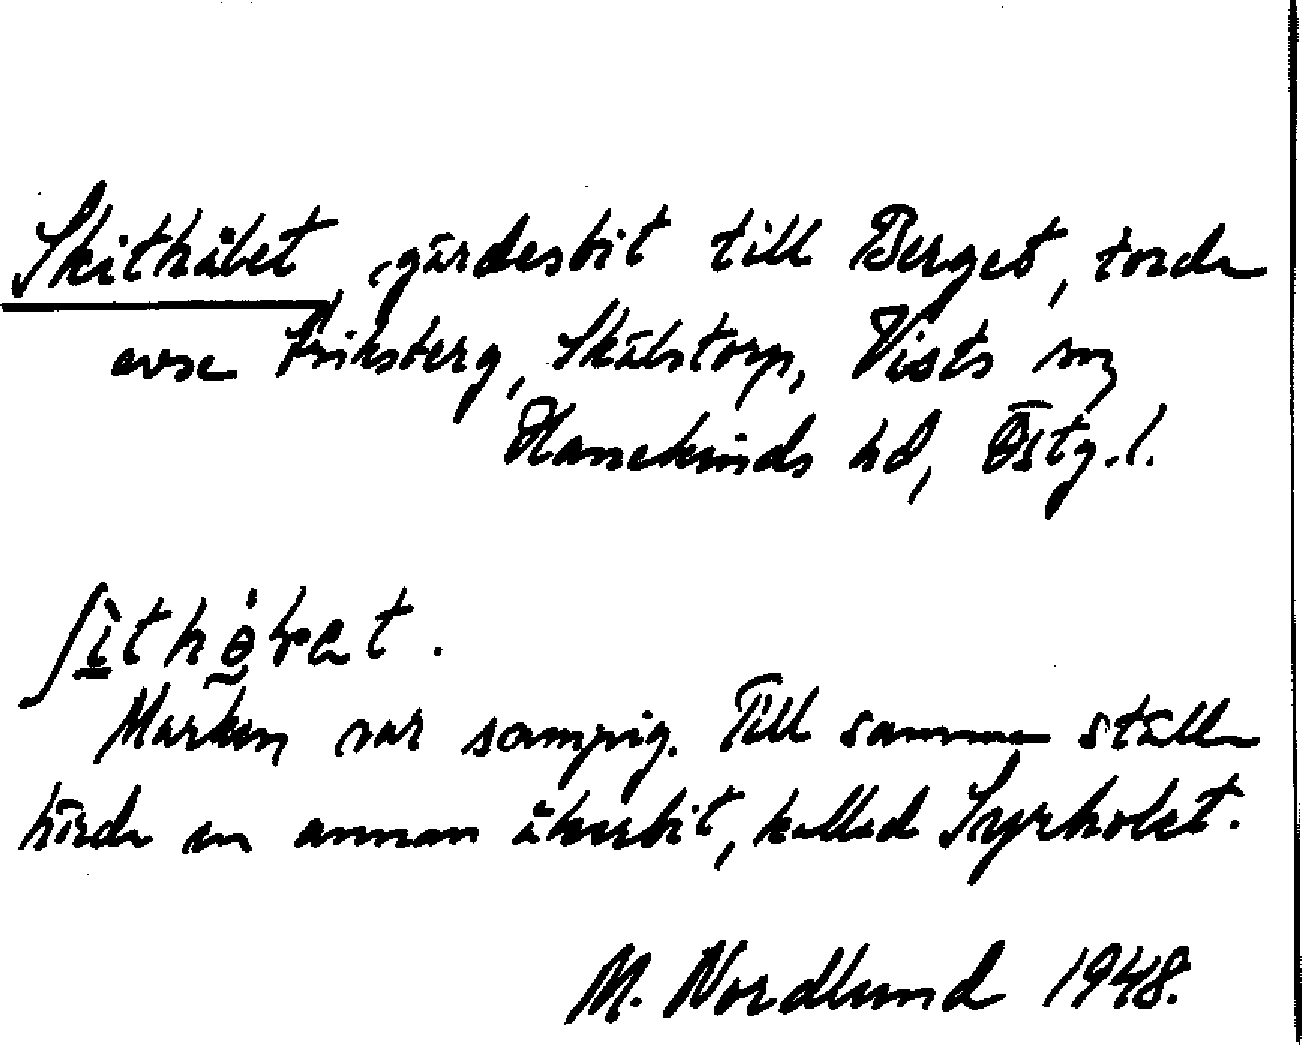 Skithålet, gärdesbit till Berget, torde
avse Eriksberg, Skälstorp, Vists sn
Hanekinds hd, Östg.l.
Marken var sumpig. Till samma ställe
hörde en annan åkerbit, kallad Syrholet.
M. Nordlund 1948.